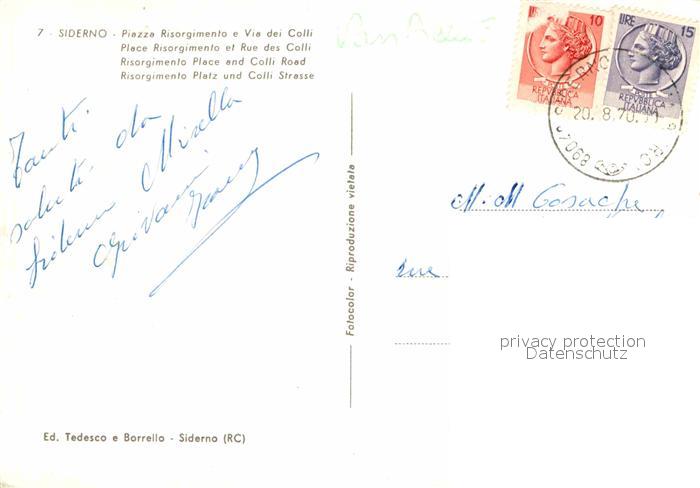 7 - SIDERNO - Piazza Risorgimento e Via dei Colli
Place Risorgimento et Rue des Colli
Risorgimento Place and Colli Road
Risorgimento Platz und Colli Strasse
LIRE 10
POSTE
REPVBBLICA
ITALIANA
LIRE 15
POSTE
REPVBBLICA
ITALIANA
20.8.70
Tanti
saluti da
Siderno Mirella
Giovanni
M. M
rue
Fotocolor - Riproduzione vietata
privacy protection
Datenschutz
Ed. Tedesco e Borrello - Siderno (RC)